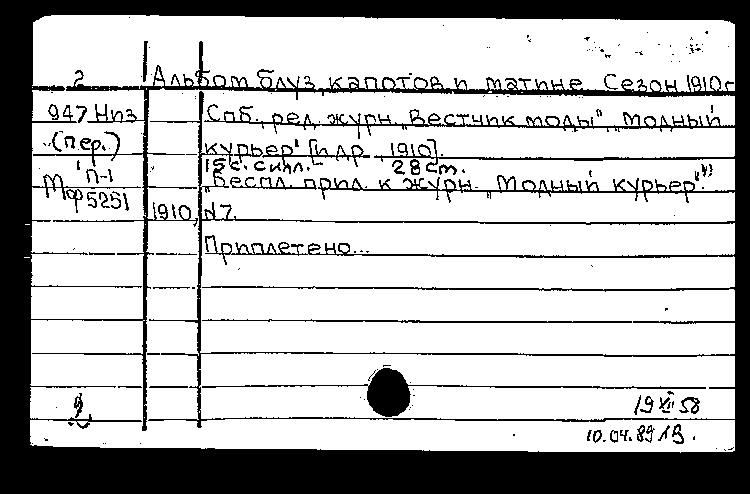 2 Альбом блуз, капотов и матине. Сезон 1910 г
947 Низ Спб., ред. журн. „Вестник моды", „Модный
(пер.) курьер" [и др., 1910].
15 с. с илл. 28 см.
П-1 „Беспл. прил. к журн. „Модный курьер"."
Мф 5251
1910, №7.
Приплетено...
19 XII 58
10.04.89 ЛВ.